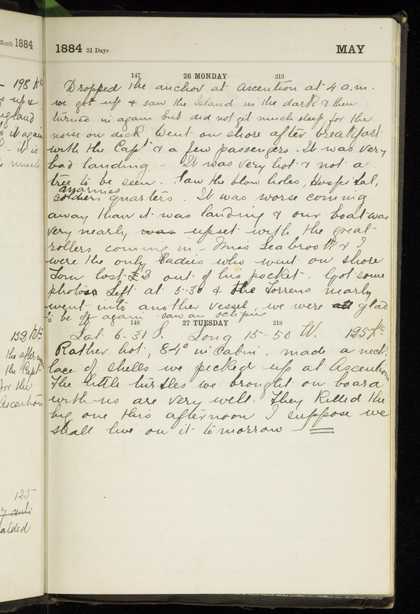 March 1884
1884 31 Days
MAY
147 26 MONDAY 219
Dropped the anchor at Ascention at 4 a.m.
we got up & saw the Island in the dark & then
turned in again but did not get much sleep for the
noise on deck. Went on shore after breakfast
with the Capt & a few passengers. It was very
bad landing - It was very hot & not a
tree to be seen. Saw the blow holes, Hospital,
marines
soldiers quarters. It was worse coming
away than it was landing & our boat was
very nearly was upset with the great
rollers coming in - Miss Seabrook & I
were the only Ladies who went on shore
Tom lost £3 out of his pocket. Got some
photos Left at 5-30 & the Torrens nearly
went into another vessel, we were all glad
to be off again saw an eclipse
148 27 TUESDAY 218
Lat 6-31 S. Long 15-50 W. 195 Kts
Rather hot, 84° in Cabin. made a neck
lace of shells we picked up at Ascention
The little turtles we brought on board
with us are very well. They killed the
big one this afternoon I suppose we
shall live on it tomorrow
198
& up &
it again
it is
159
the after
the Capt
for the
Ascention
125